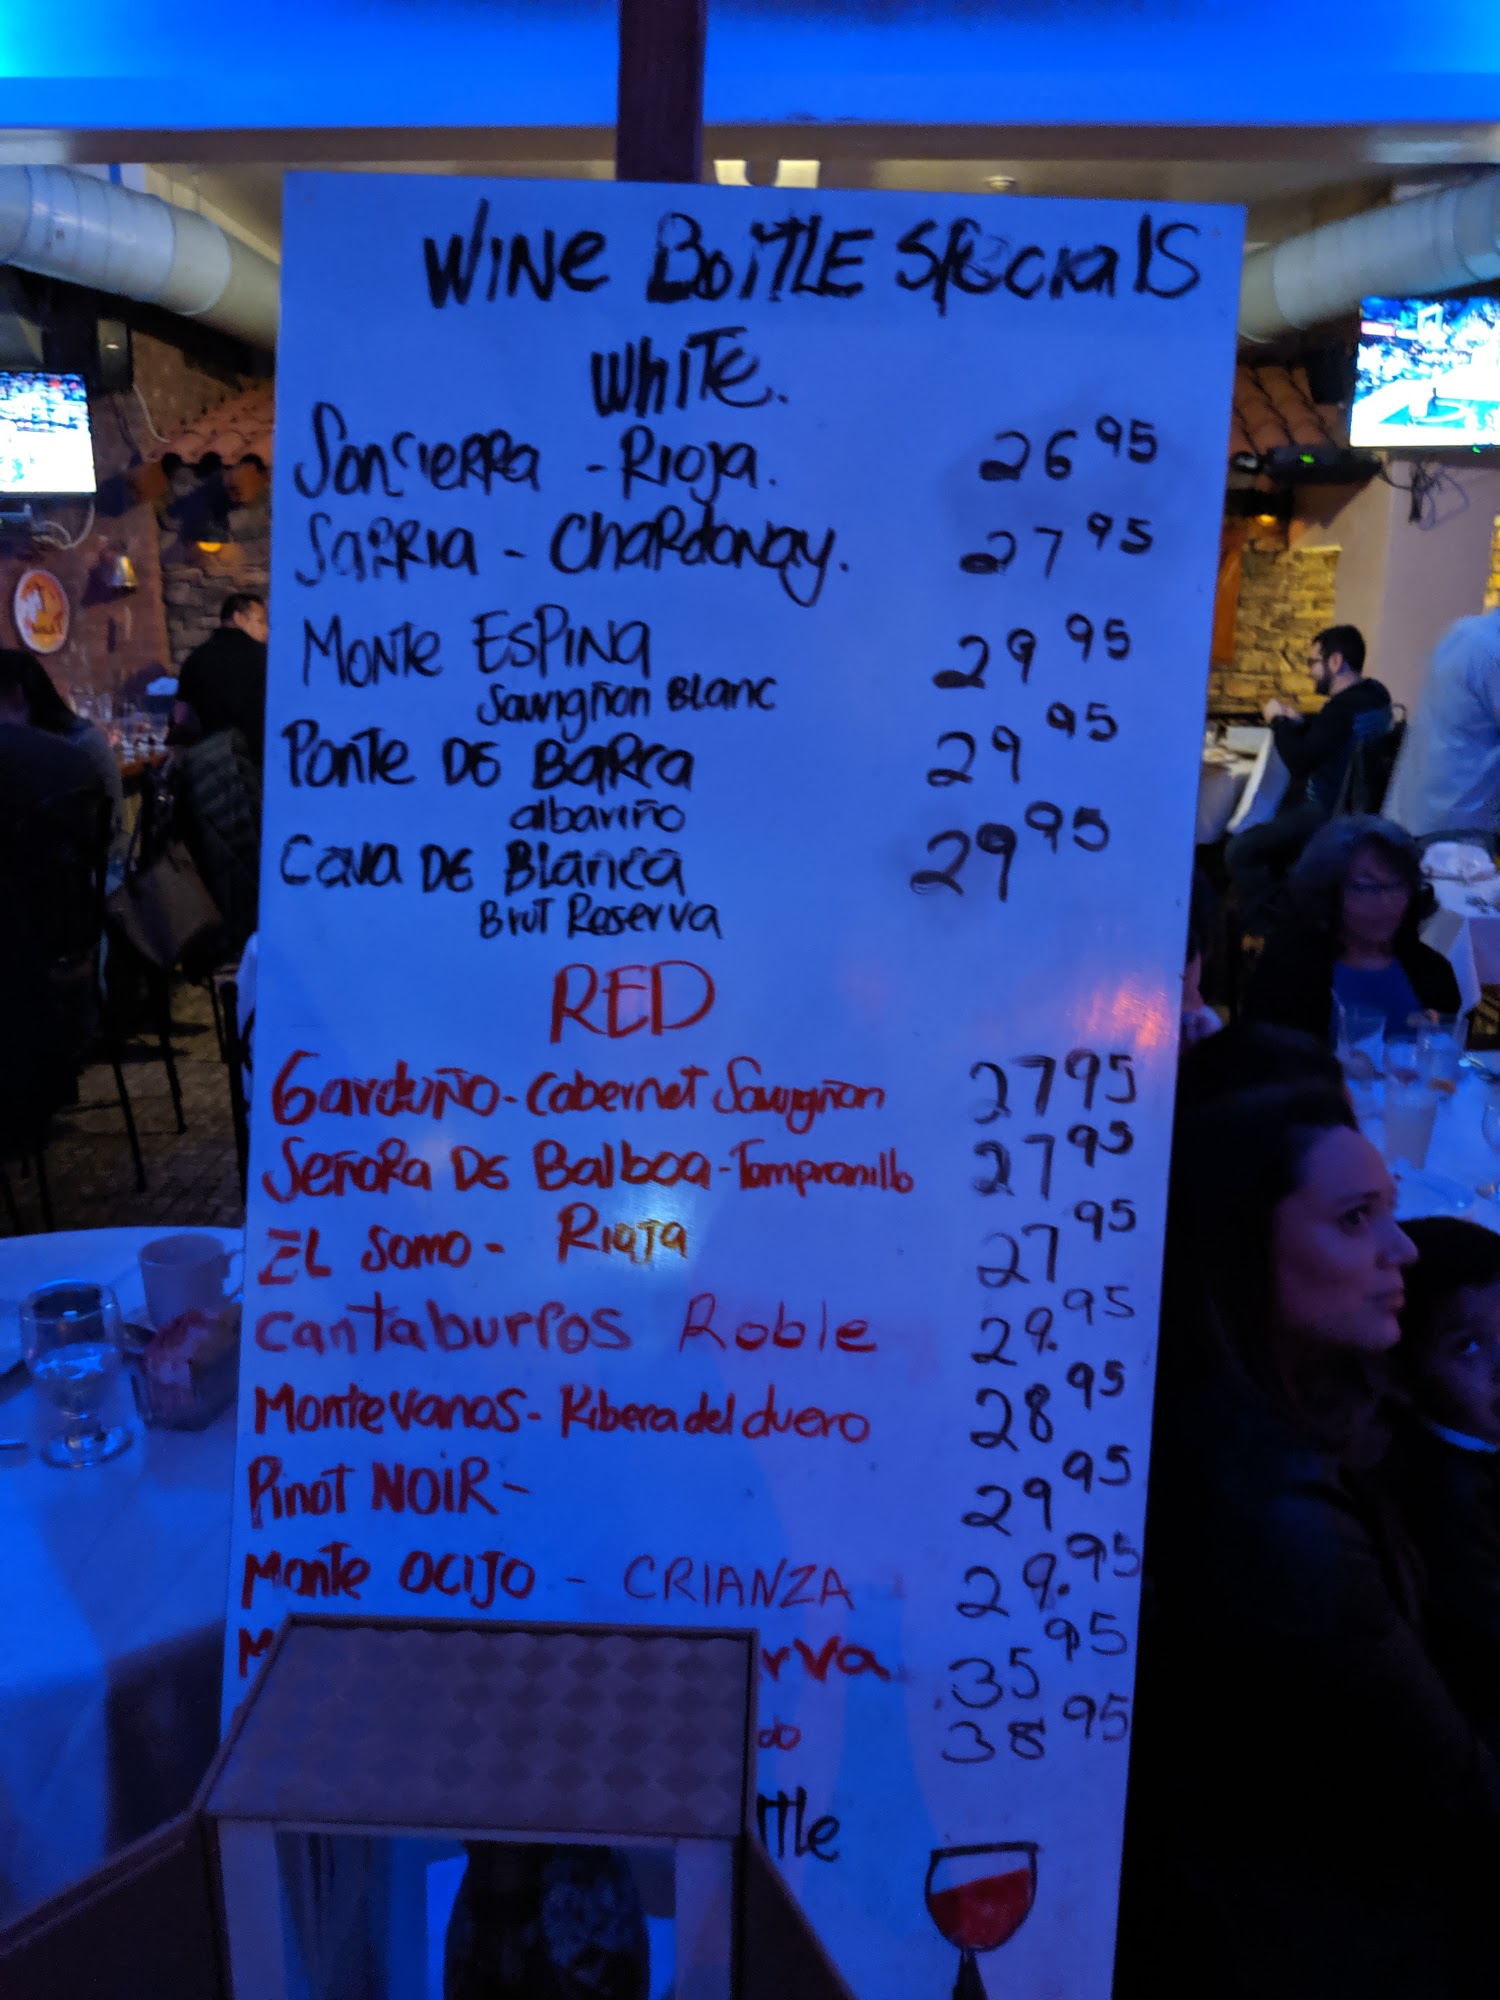 WINE BOTTLE SPecialS
WhITe.
Soncierra - Rioja. 26 95
Sarria - Chardonay. 27 95
Monte ESPINa 29 95
Sauvigñon Blanc
Ponte De Barra 29 95
albariño
Cava De Blanca 29 95
Brut Reserva
RED
Garduño - Cabernet Sauvigñon 27 95
Señora De Balboa - Tempranillo 27 95
EL Somo - Rioja 27 95
Cantaburros Roble 29.95
Montevanos - Ribera del duero 28 95
Pinot NOIR - 29 95
Monte OCIJO - CRIANZA 29.95
35 95
38 95